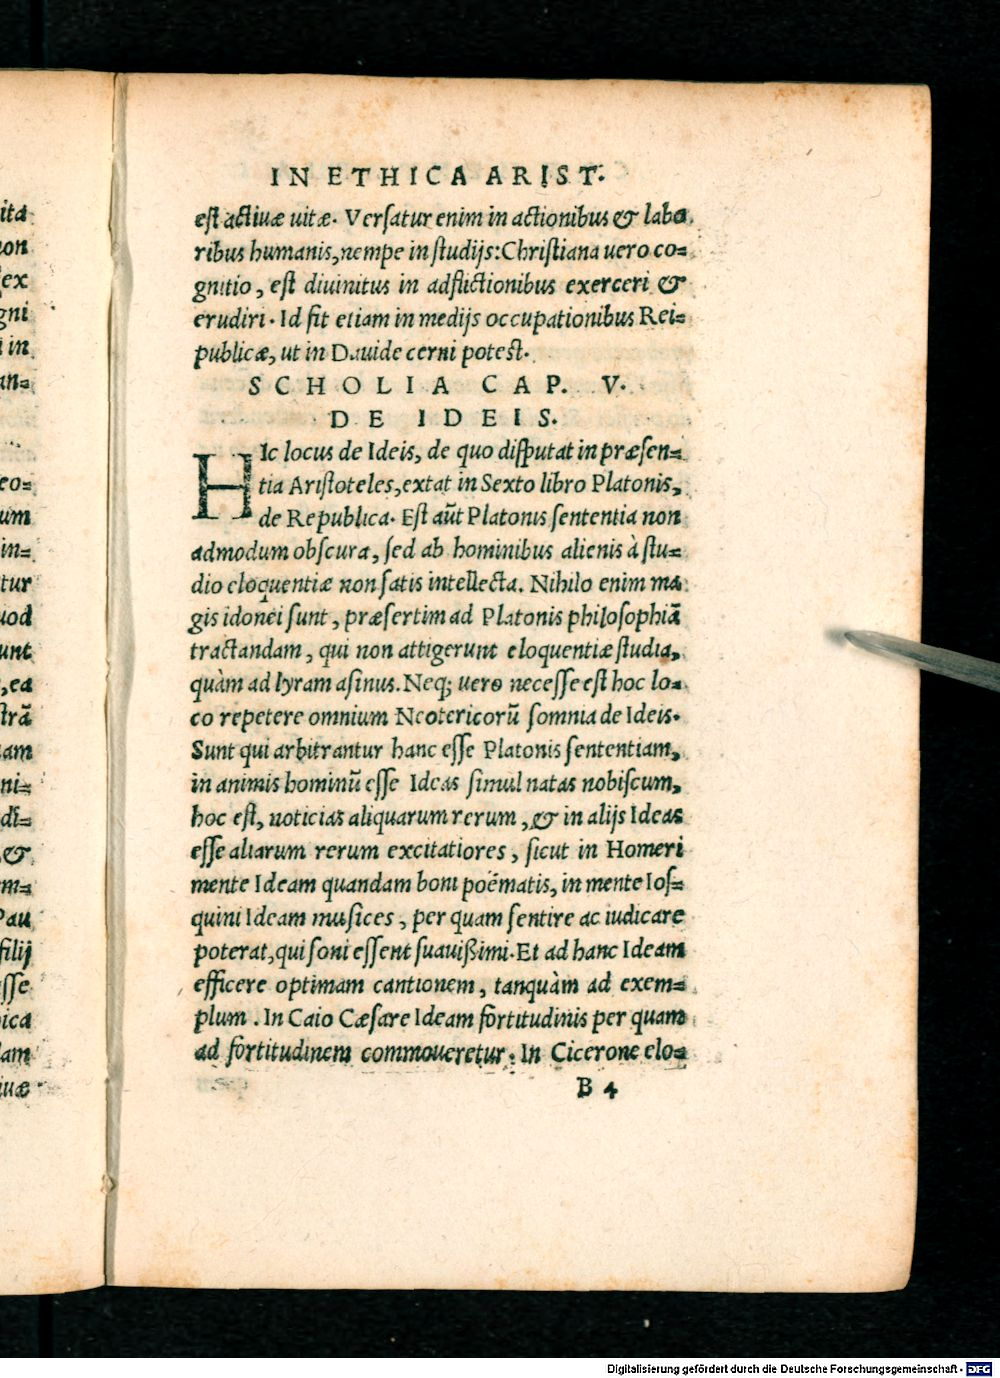 IN ETHICA ARIST.
est actiuæ uitæ. Versatur enim in actionibus & labo
ribus humanis, nempe in studijs: Christiana uero co-
gnitio, est diuinitus in adflictionibus exerceri &
erudiri. Id fit etiam in medijs occupationibus Rei-
publicæ, ut in Dauide cerni potest.
SCHOLIA CAP. V.
DE IDEIS.
HIc locus de Ideis, de quo disputat in præsen-
tia Aristoteles, extat in Sexto libro Platonis,
de Republica. Est aũt Platonis sententia non
admodum obscura, sed ab hominibus alienis à stu-
dio eloquentiæ non satis intellecta. Nihilo enim ma
gis idonei sunt, præsertim ad Platonis philosophiã
tractandam, qui non attigerunt eloquentiæ studia,
quàm ad lyram asinus. Neq; uero necesse est hoc lo-
co repetere omnium Neotericorũ somnia de Ideis.
Sunt qui arbitrantur hanc esse Platonis sententiam,
in animis hominũ esse Ideas simul natas nobiscum,
hoc est, noticias aliquarum rerum, & in alijs Ideas
esse aliarum rerum excitatiores, sicut in Homeri
mente Ideam quandam boni poëmatis, in mente Ios-
quini Ideam musices, per quam sentire ac iudicare
poterat, qui soni essent suauißimi. Et ad hanc Ideam
efficere optimam cantionem, tanquàm ad exem-
plum. In Caio Cæsare Ideam fortitudinis per quam
ad fortitudinem commoueretur. In Cicerone elo-
B 4
ita
non
ex
gni
in
an-
eo-
um
in-
tur
uod
unt
, ea
strã
am
ni-
di-
, &
m-
Pau
filij
sse
ica
lam
iuæ
Digitalisierung gefördert durch die Deutsche Forschungsgemeinschaft - DFG